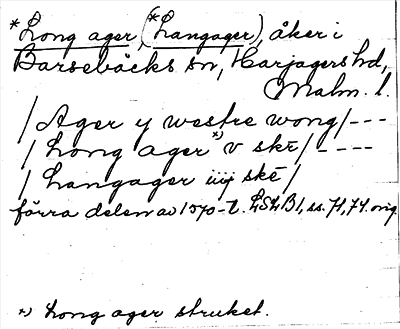 *Long ager, (*Langager), åker i
Barsebäcks sn, Harjagers hd,
Malm. l.
/ Ager y westre wong / ---
/ Long ager *) v skē / ----
/ Langager iiij skē /
förra delen av 1570-t. LSLB1, ss. 71, 74. orig.
*) Long ager struket.